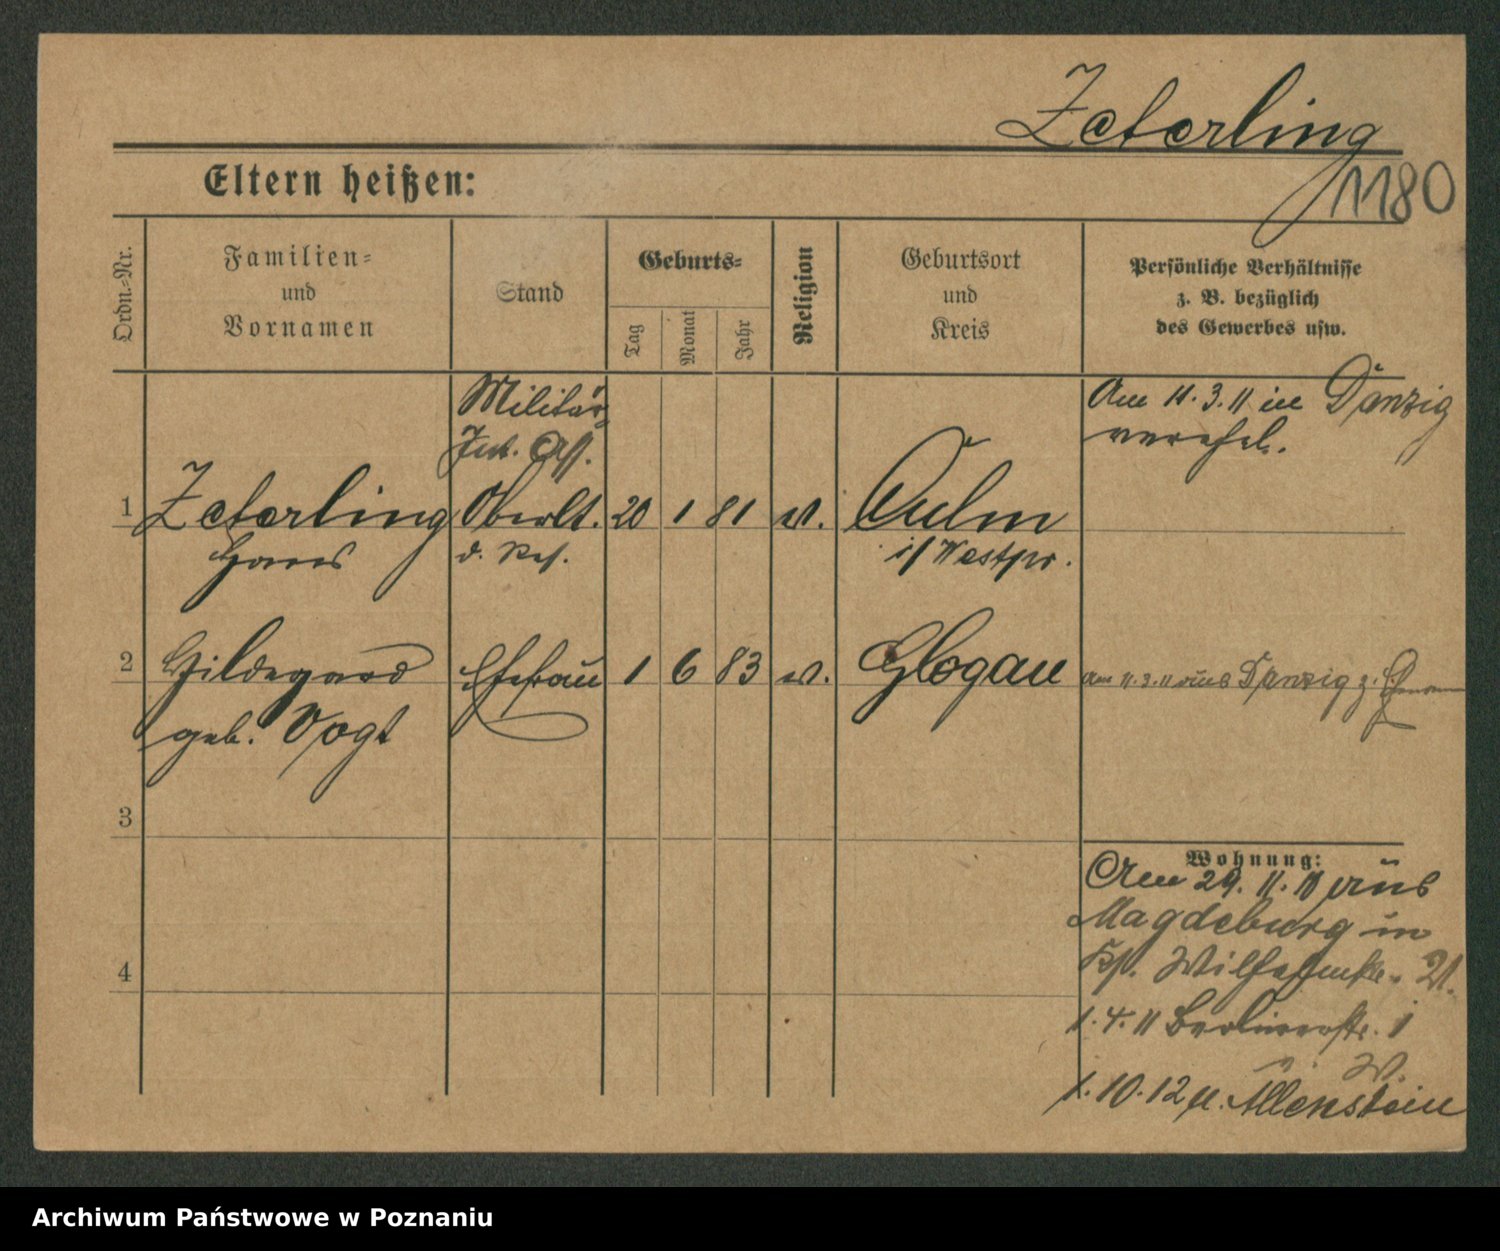 Zeterling
1180
Eltern heißen:
Ordn.-Nr.
Familien-
und
Vornamen
Stand
Geburts-
Tag
Monat
Jahr
Religion
Geburtsort
und
Kreis
Persönliche Verhältnisse
z. B. bezüglich
des Gewerbes usw.
Militär
Int. Ass.
Am 11.3.11 in Danzig
verehel.
1 Zeterling Oberlt. 20 1 81 ev. Culm
Hans d. Res. i/ Westpr.
2 Hildegard Ehefrau 1 6 83 ev. Glogau am 11.3.11 aus Danzig z.
geb. Vogt
3
4
Wohnung:
Am 29.11.10 aus
Magdeburg in
Wilhelmstr. 21.
1.4.11 Berlinerstr. 1
W.
1.10.12 n. Allenstein
Archiwum Państwowe w Poznaniu